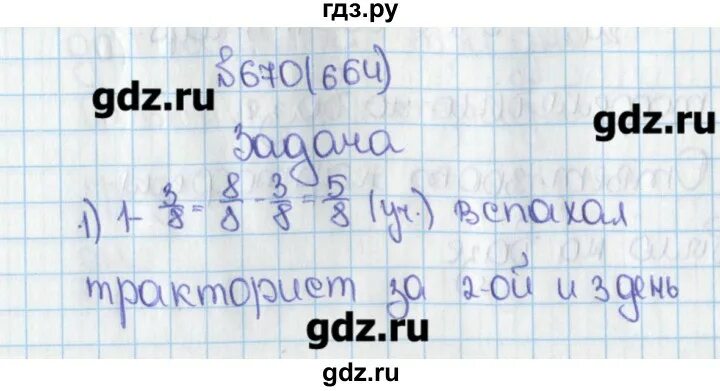 гдз.ру
№670(664)
gdz.ru
gdz.ru
Задача
1) 1-3/8=8/8-3/8=5/8 (уч.) вспахал
тракторист за 2-ой и 3 день
gdz.ru
gdz.ru